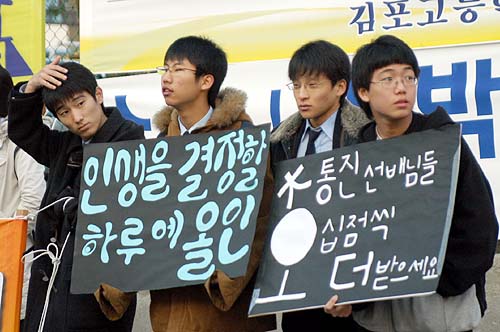 김포고등
박
인생을 결정할
하루에 올인
통진 선배님들
십점씩
더 받으세요